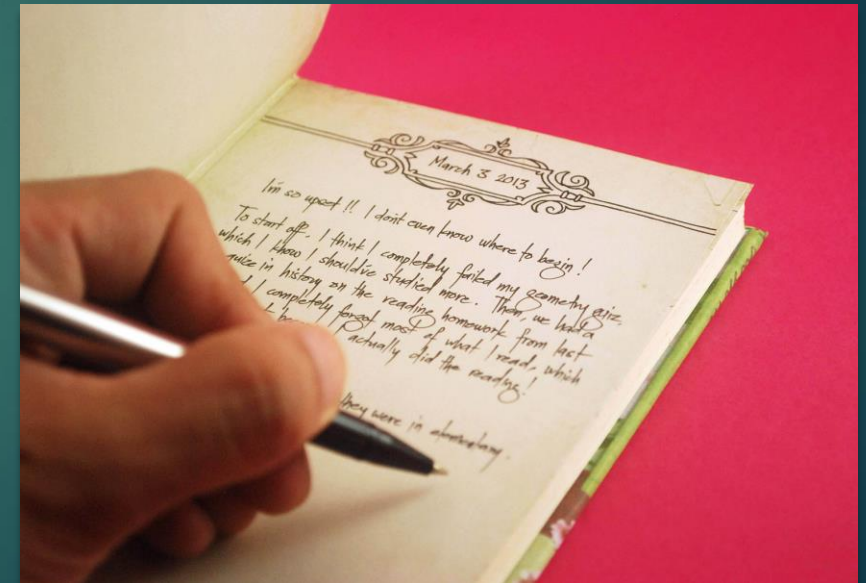 March 3 2013
I'm so upset!! I dont even know where to begin!
To start off, I think I completely failed my geometry quiz,
which I know I should've studied more. Then, we had a
quiz in history on the reading homework from last
I completely forgot most of what I read, which
actually did the reading!
they were in elementary.